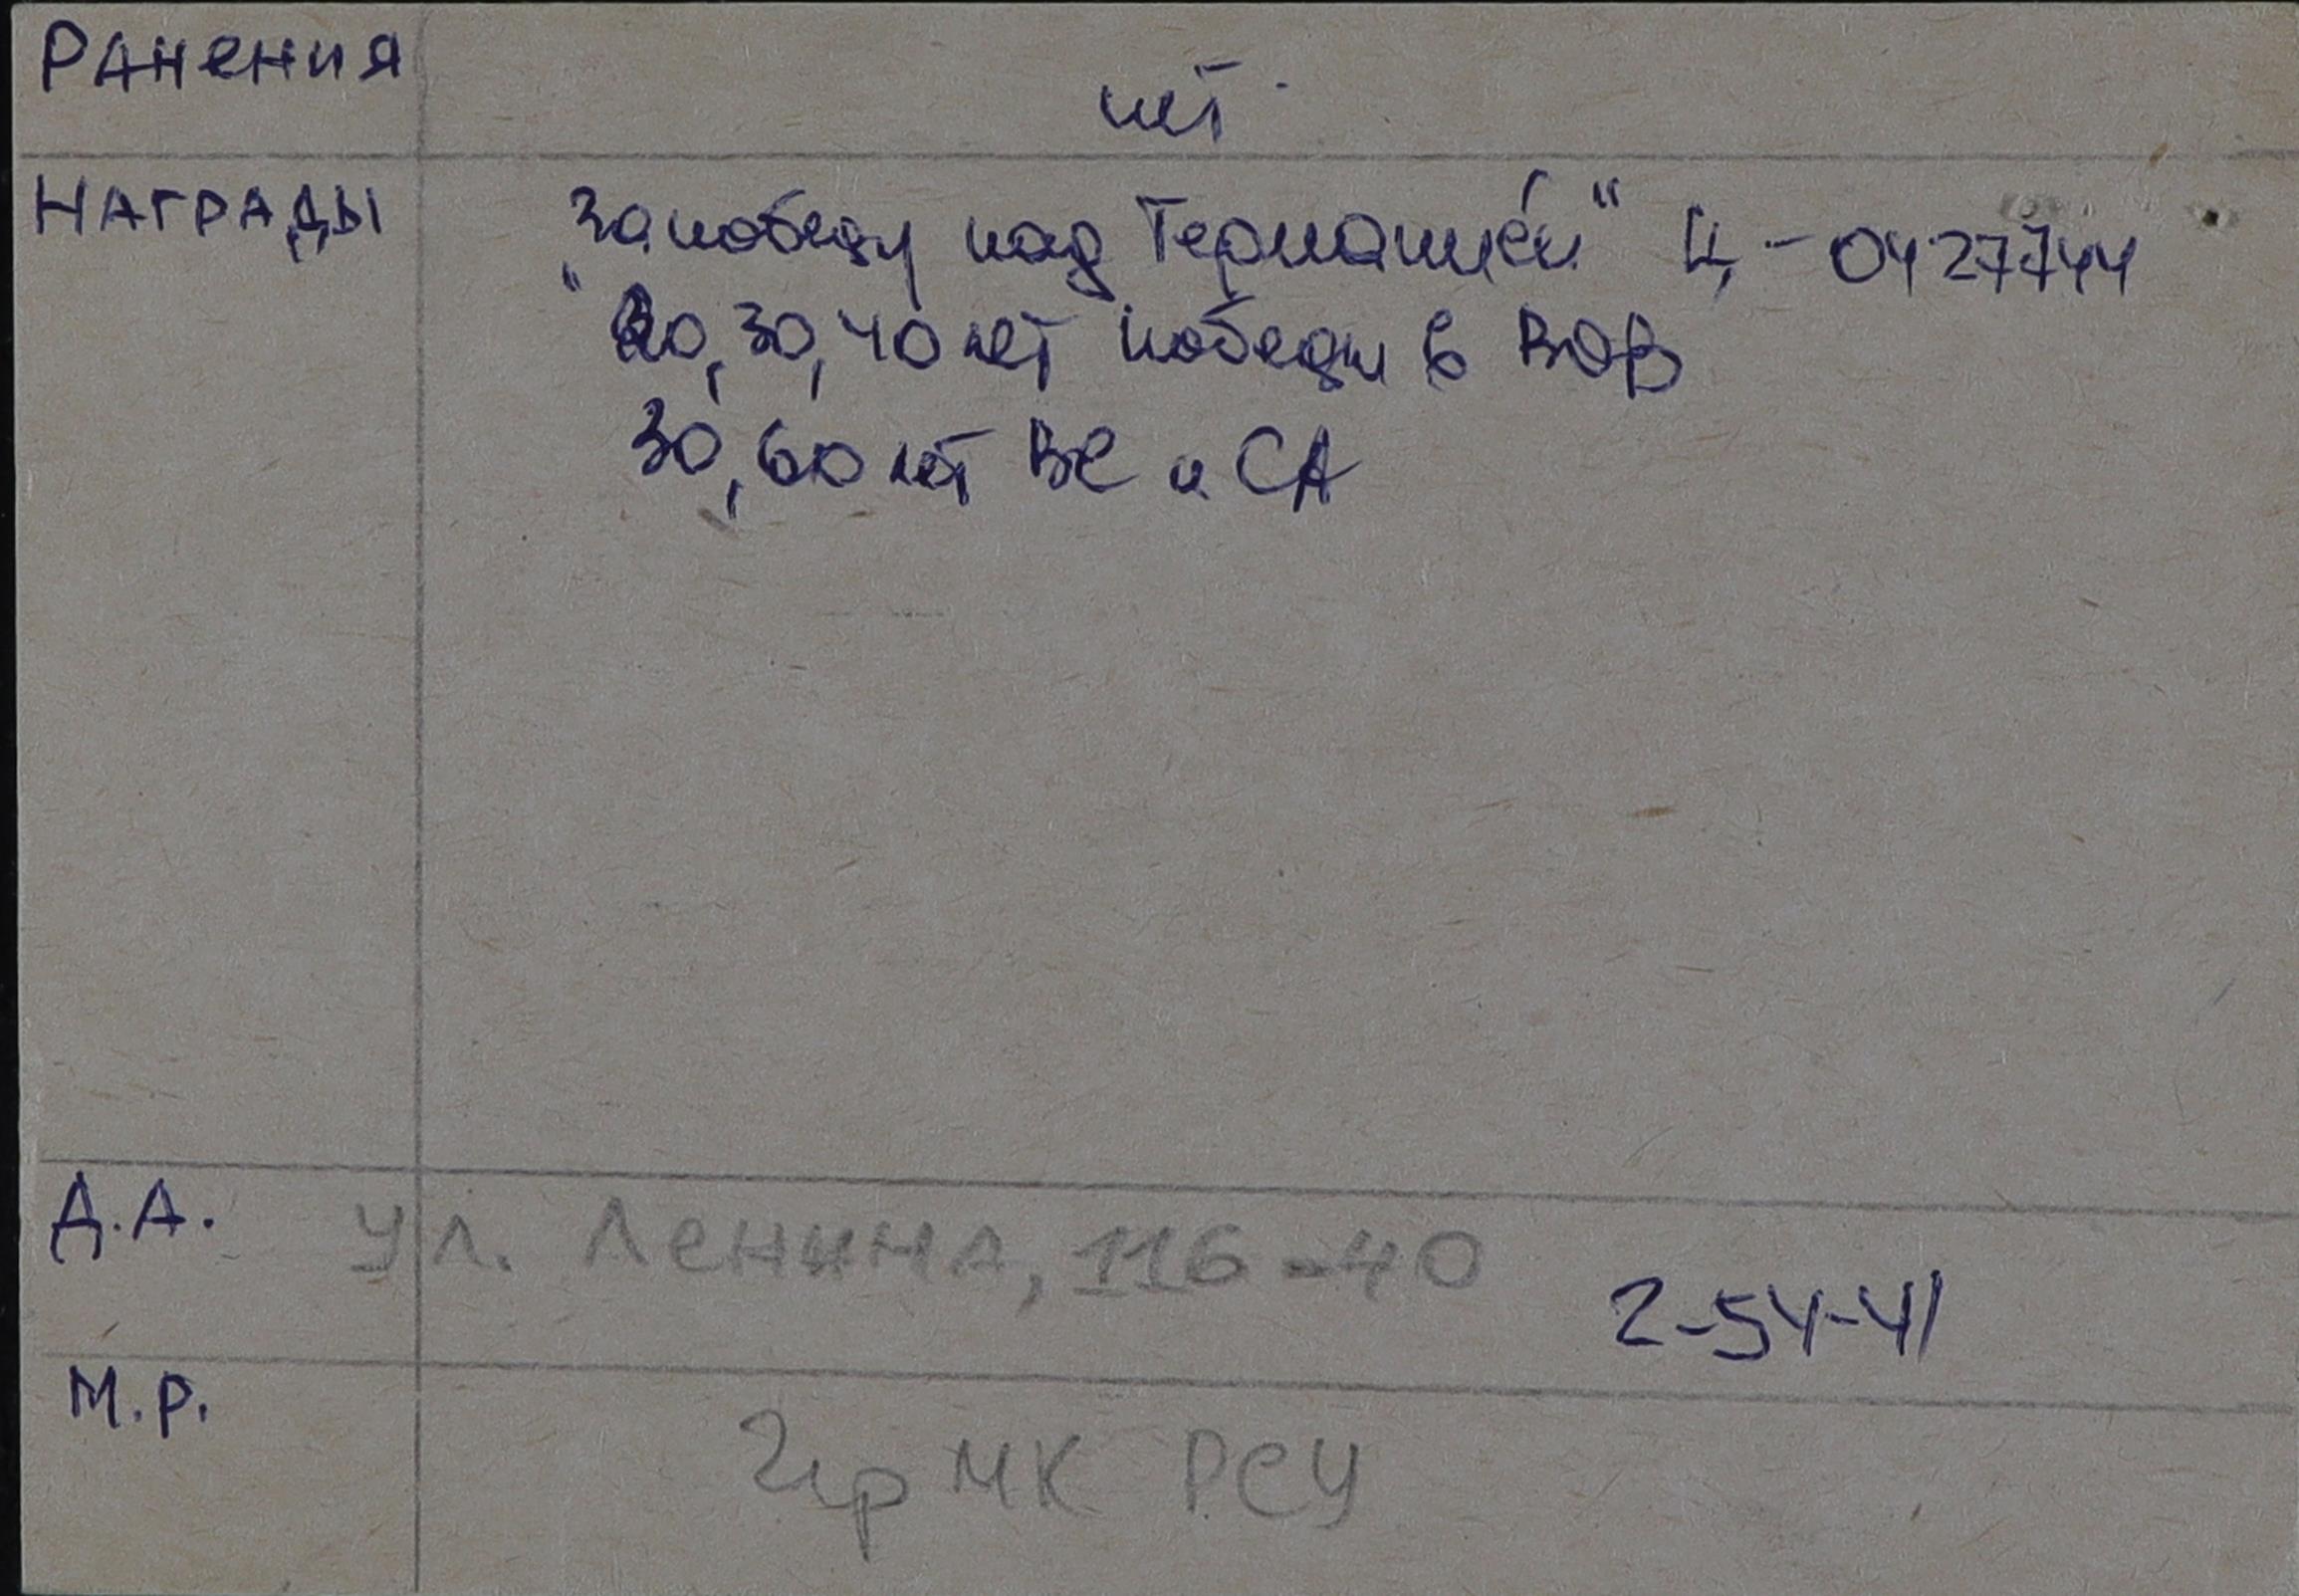 Ранения нет.
Награды „За победу над Германией“ Ц-0427744
20, 30, 40 лет победы в ВОВ
30, 60 лет ВС и СА
Д.А. ул. Ленина, 116-40 2-54-41
М.Р. МК РСУ